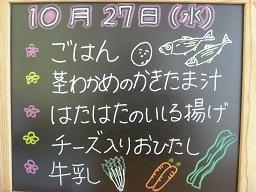 10月27日(水)
ごはん
茎わかめのかきたま汁
はたはたのいしる揚げ
チーズ入りおひたし
牛乳